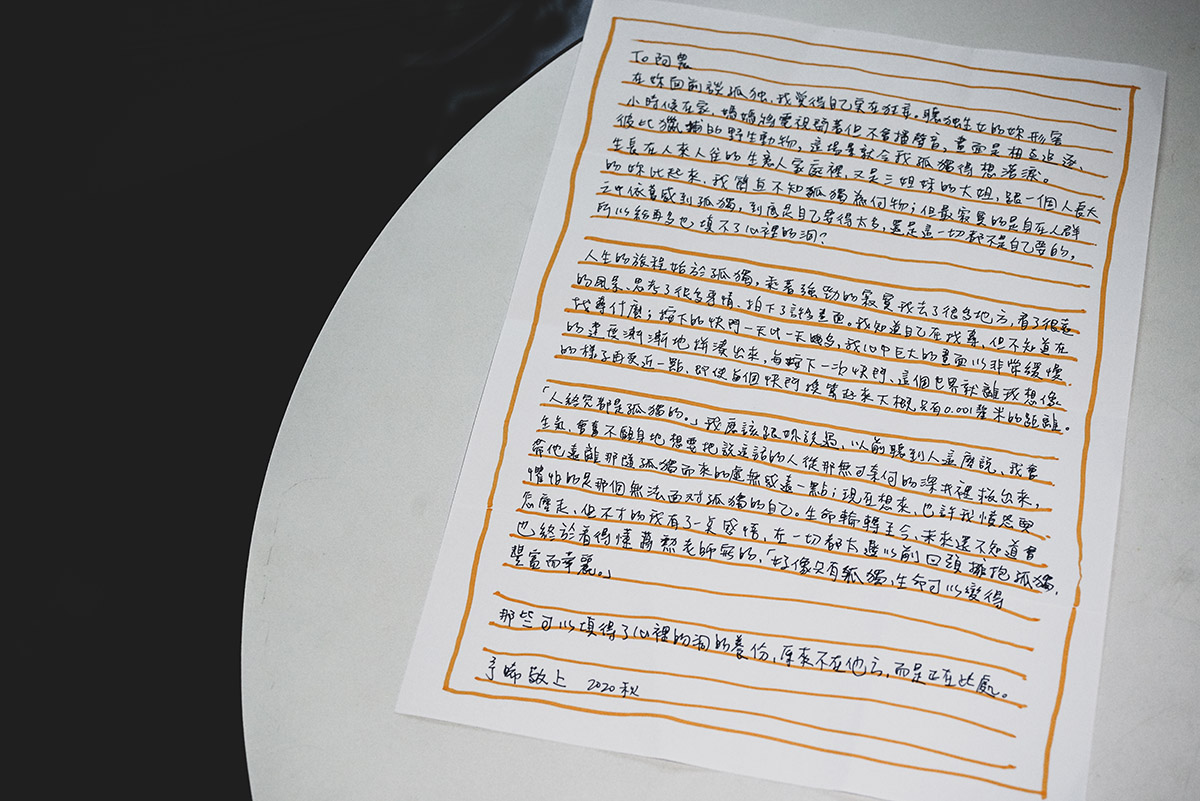 To 阿農
在妳面前談孤独,我覺得自己實在狂妄。聽独生女的妳形容
小時候在家,媽媽將電視開著但不會播聲音,畫面是相互追逐、
彼此獵捕的野生動物,這場景就令我孤獨得想落淚。
生長在人來人往的生意人家庭裡,又是三姐妹的大姐,跟一個人長大
的妳比起來,我簡直不知孤獨為何物;但最寂寞的是自在人群
之中依舊感到孤獨,到底是自己要得太多,還是這一切都不是自己要的,
所以給再多也填不了心裡的洞?
人生的旅程始於孤獨,乘著強勁的寂寞我去了很多地方,看了很遠
的風景、思考了很多事情、拍下了許多畫面。我知道自己在找尋,但不知道在
找尋什麼;按下的快門一天比一天與多,我心中巨大的畫面以非常緩慢
的速度漸漸地拼湊出來,每按下一次快門、這個世界就離我想像
的樣子再更近一點,即使每個快門換算起來大概只有0.001釐米的距離。
「人終究都是孤獨的。」我應該跟妳說過,以前聽到人這麼說、我會
生氣,會奮不顧身地想要地說這話的人從那無可奈何的深井裡救出來,
帶他遠離那隨孤獨而來的虛無感遠一點;現在想來,也許我憤怒與
懼怕的是那個無法面對孤獨的自己。生命輪轉至今,未來還不知道會
怎麼走,但不才的我有了一点感悟,在一切都太遲以前回頭擁抱孤獨,
也終於看得懂蔣勳老師寫的,「好像只有孤獨,生命可以變得
豐富而華麗。」
那些可以填得了心裡的洞的養份,原來不在他方,而是正在此處。
予晞敬上 2020 秋